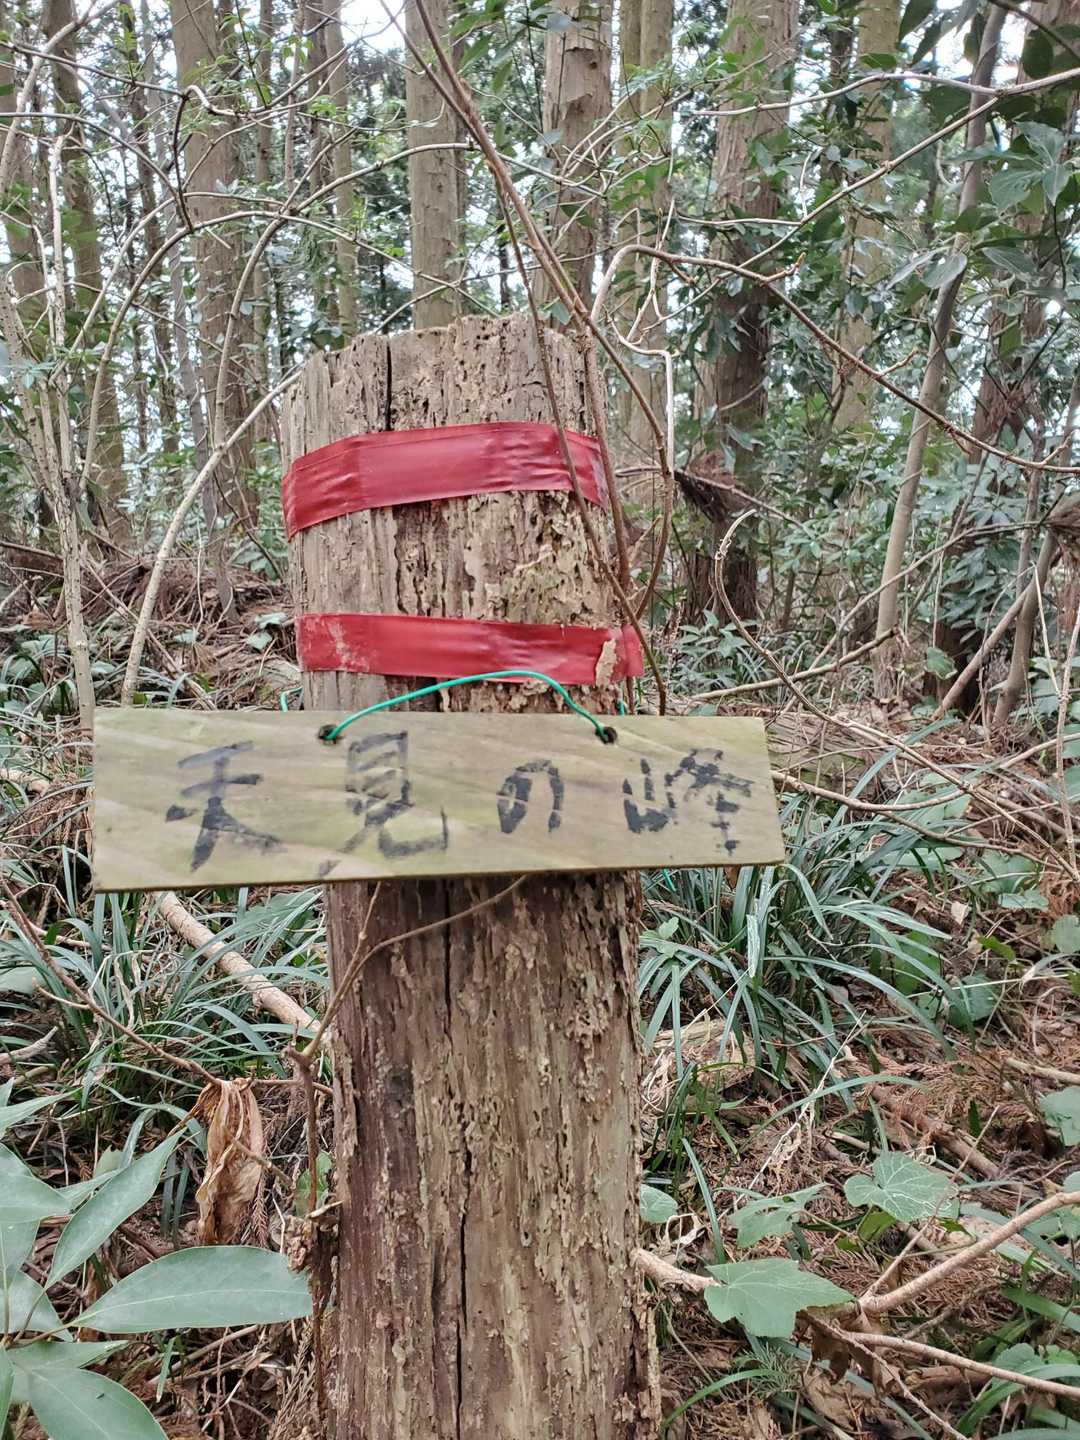 天見の峰